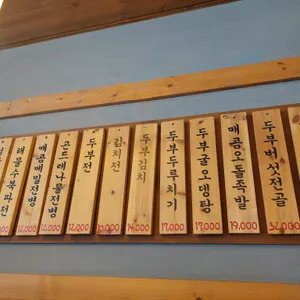 해물수북파전
12,000
매콤메밀전병
12,000
곤드레나물전병
12,000
두부전
10,000
김치전
두부김치
두부두루치기
17,000
두부굴오뎅탕
17,000
매콤오돌족발
19,000
두부버섯전골
32,000